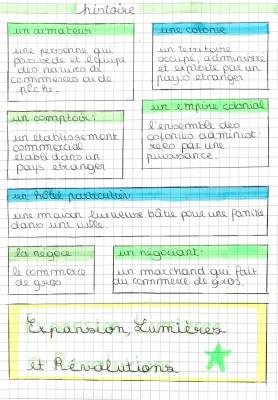 histoire
un armateur
une personne qui
possède et équipe
des navires de
commerces ou de
pêche.
une colonie
un territoire
occupé, administré
et exploité par un
pays étranger
un comptoir:
un etablissement
commercial
établi dans un
pays etranger
un empire colonial
l'ensemble des
colonies administ
rées par une
puissance.
un hôtel particulier
une maison luxueuse bâtie pour une famille
dans une ville.
la négoce
le commerce
de gros
un négociant:
un marchand qui fait
du commerce de gros.
Expansion, Lumières
et Révolutions